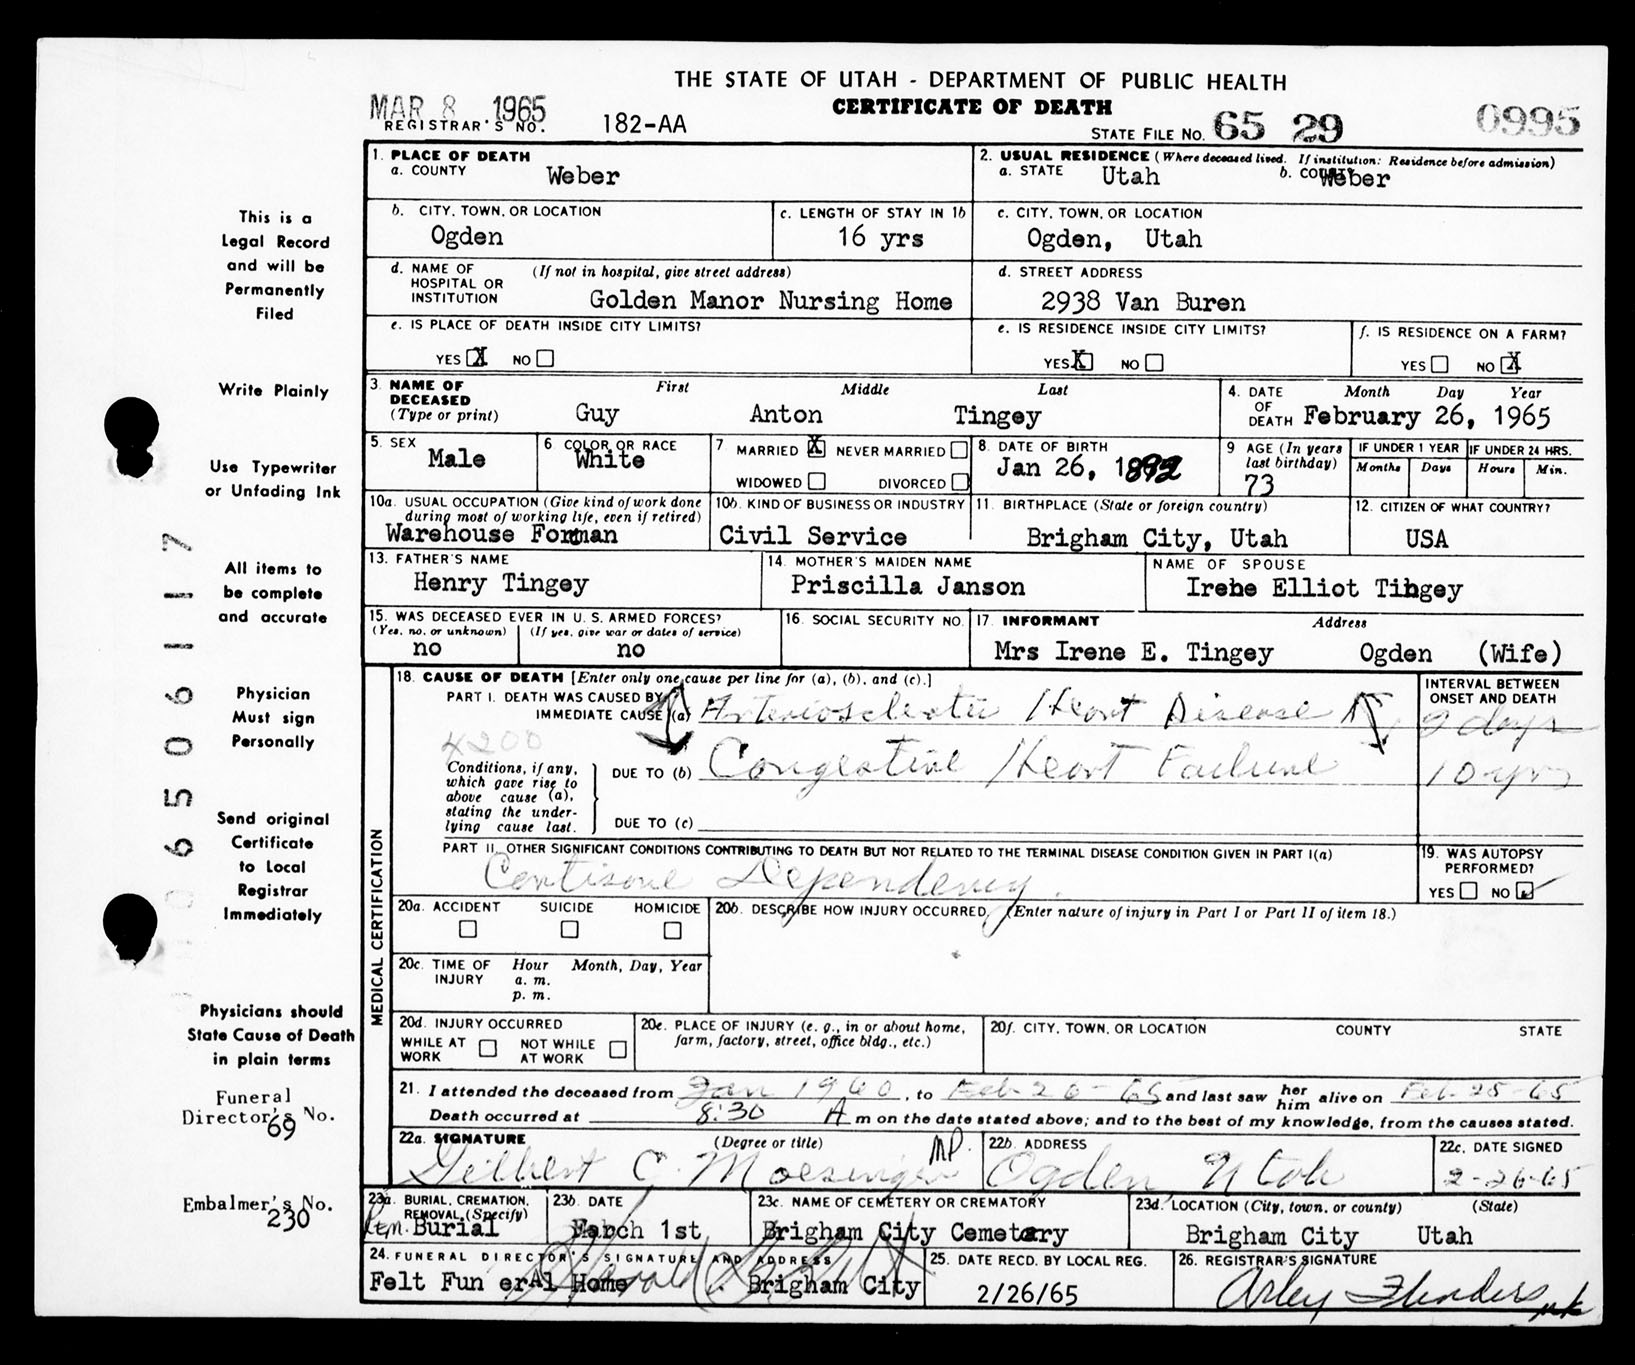 THE STATE OF UTAH - DEPARTMENT OF PUBLIC HEALTH
MAR 8 1965
CERTIFICATE OF DEATH
0995
REGISTRAR'S NO. 182-AA
STATE FILE NO. 65 29
1. PLACE OF DEATH
a. COUNTY Weber
2. USUAL RESIDENCE (Where deceased lived. If institution: Residence before admission)
a. STATE Utah b. COUNTY Weber
b. CITY, TOWN, OR LOCATION
Ogden
c. LENGTH OF STAY IN 1b
16 yrs
c. CITY, TOWN, OR LOCATION
Ogden, Utah
d. NAME OF HOSPITAL OR INSTITUTION (If not in hospital, give street address)
Golden Manor Nursing Home
d. STREET ADDRESS
2938 Van Buren
e. IS PLACE OF DEATH INSIDE CITY LIMITS?
YES X NO
e. IS RESIDENCE INSIDE CITY LIMITS?
YES X NO
f. IS RESIDENCE ON A FARM?
YES NO X
3. NAME OF DECEASED (Type or print) First Middle Last
Guy Anton Tingey
4. DATE OF DEATH Month Day Year
February 26, 1965
5. SEX
Male
6 COLOR OR RACE
White
7 MARRIED X NEVER MARRIED
WIDOWED DIVORCED
8 DATE OF BIRTH
Jan 26, 1892
9 AGE (In years last birthday)
73
IF UNDER 1 YEAR
Months Days
IF UNDER 24 HRS.
Hours Min.
10a. USUAL OCCUPATION (Give kind of work done during most of working life, even if retired)
Warehouse Forman
10b. KIND OF BUSINESS OR INDUSTRY
Civil Service
11. BIRTHPLACE (State or foreign country)
Brigham City, Utah
12. CITIZEN OF WHAT COUNTRY?
USA
13. FATHER'S NAME
Henry Tingey
14. MOTHER'S MAIDEN NAME
Priscilla Janson
NAME OF SPOUSE
Irene Elliot Tingey
15. WAS DECEASED EVER IN U. S. ARMED FORCES?
(Yes, no, or unknown) (If yes, give war or dates of service)
no no
16. SOCIAL SECURITY NO.
17. INFORMANT Address
Mrs Irene E. Tingey Ogden (Wife)
MEDICAL CERTIFICATION
18. CAUSE OF DEATH [Enter only one cause per line for (a), (b), and (c).]
INTERVAL BETWEEN ONSET AND DEATH
PART I. DEATH WAS CAUSED BY
IMMEDIATE CAUSE (a) Arteriosclerotic Heart Disease
2 days
4200
Conditions, if any, which gave rise to above cause (a), stating the underlying cause last.
DUE TO (b) Congestive Heart Failure
10 yrs
DUE TO (c)
PART II. OTHER SIGNIFICANT CONDITIONS CONTRIBUTING TO DEATH BUT NOT RELATED TO THE TERMINAL DISEASE CONDITION GIVEN IN PART I(a)
Cortisone Dependency.
19. WAS AUTOPSY PERFORMED?
YES NO ✓
20a. ACCIDENT SUICIDE HOMICIDE
20b. DESCRIBE HOW INJURY OCCURRED. (Enter nature of injury in Part I or Part II of item 18.)
20c. TIME OF INJURY Hour Month, Day, Year
a. m.
p. m.
20d. INJURY OCCURRED
WHILE AT WORK NOT WHILE AT WORK
20e. PLACE OF INJURY (e. g., in or about home, farm, factory, street, office bldg., etc.)
20f. CITY, TOWN, OR LOCATION COUNTY STATE
21. I attended the deceased from Jan 1960, to Feb 26-65 and last saw her him alive on Feb. 25-65
Death occurred at 8:30 A m on the date stated above; and to the best of my knowledge, from the causes stated.
22a. SIGNATURE (Degree or title)
Gilbert C. Moesinger MD.
22b. ADDRESS
Ogden Utah
22c. DATE SIGNED
2-26-65
23a. BURIAL, CREMATION, REMOVAL (Specify)
Rem. Burial
23b. DATE
March 1st
23c. NAME OF CEMETERY OR CREMATORY
Brigham City Cemetery
23d. LOCATION (City, town, or county) (State)
Brigham City Utah
24. FUNERAL DIRECTOR'S SIGNATURE AND ADDRESS
Felt Fun erAl Home Brigham City
25. DATE RECD. BY LOCAL REG.
2/26/65
26. REGISTRAR'S SIGNATURE
Arley Flinders
This is a
Legal Record
and will be
Permanently
Filed
Write Plainly
Use Typewriter
or Unfading Ink
All items to
be complete
and accurate
Physician
Must sign
Personally
Send original
Certificate
to Local
Registrar
Immediately
Physicians should
State Cause of Death
in plain terms
Funeral
Director's No.
69
Embalmer's No.
230